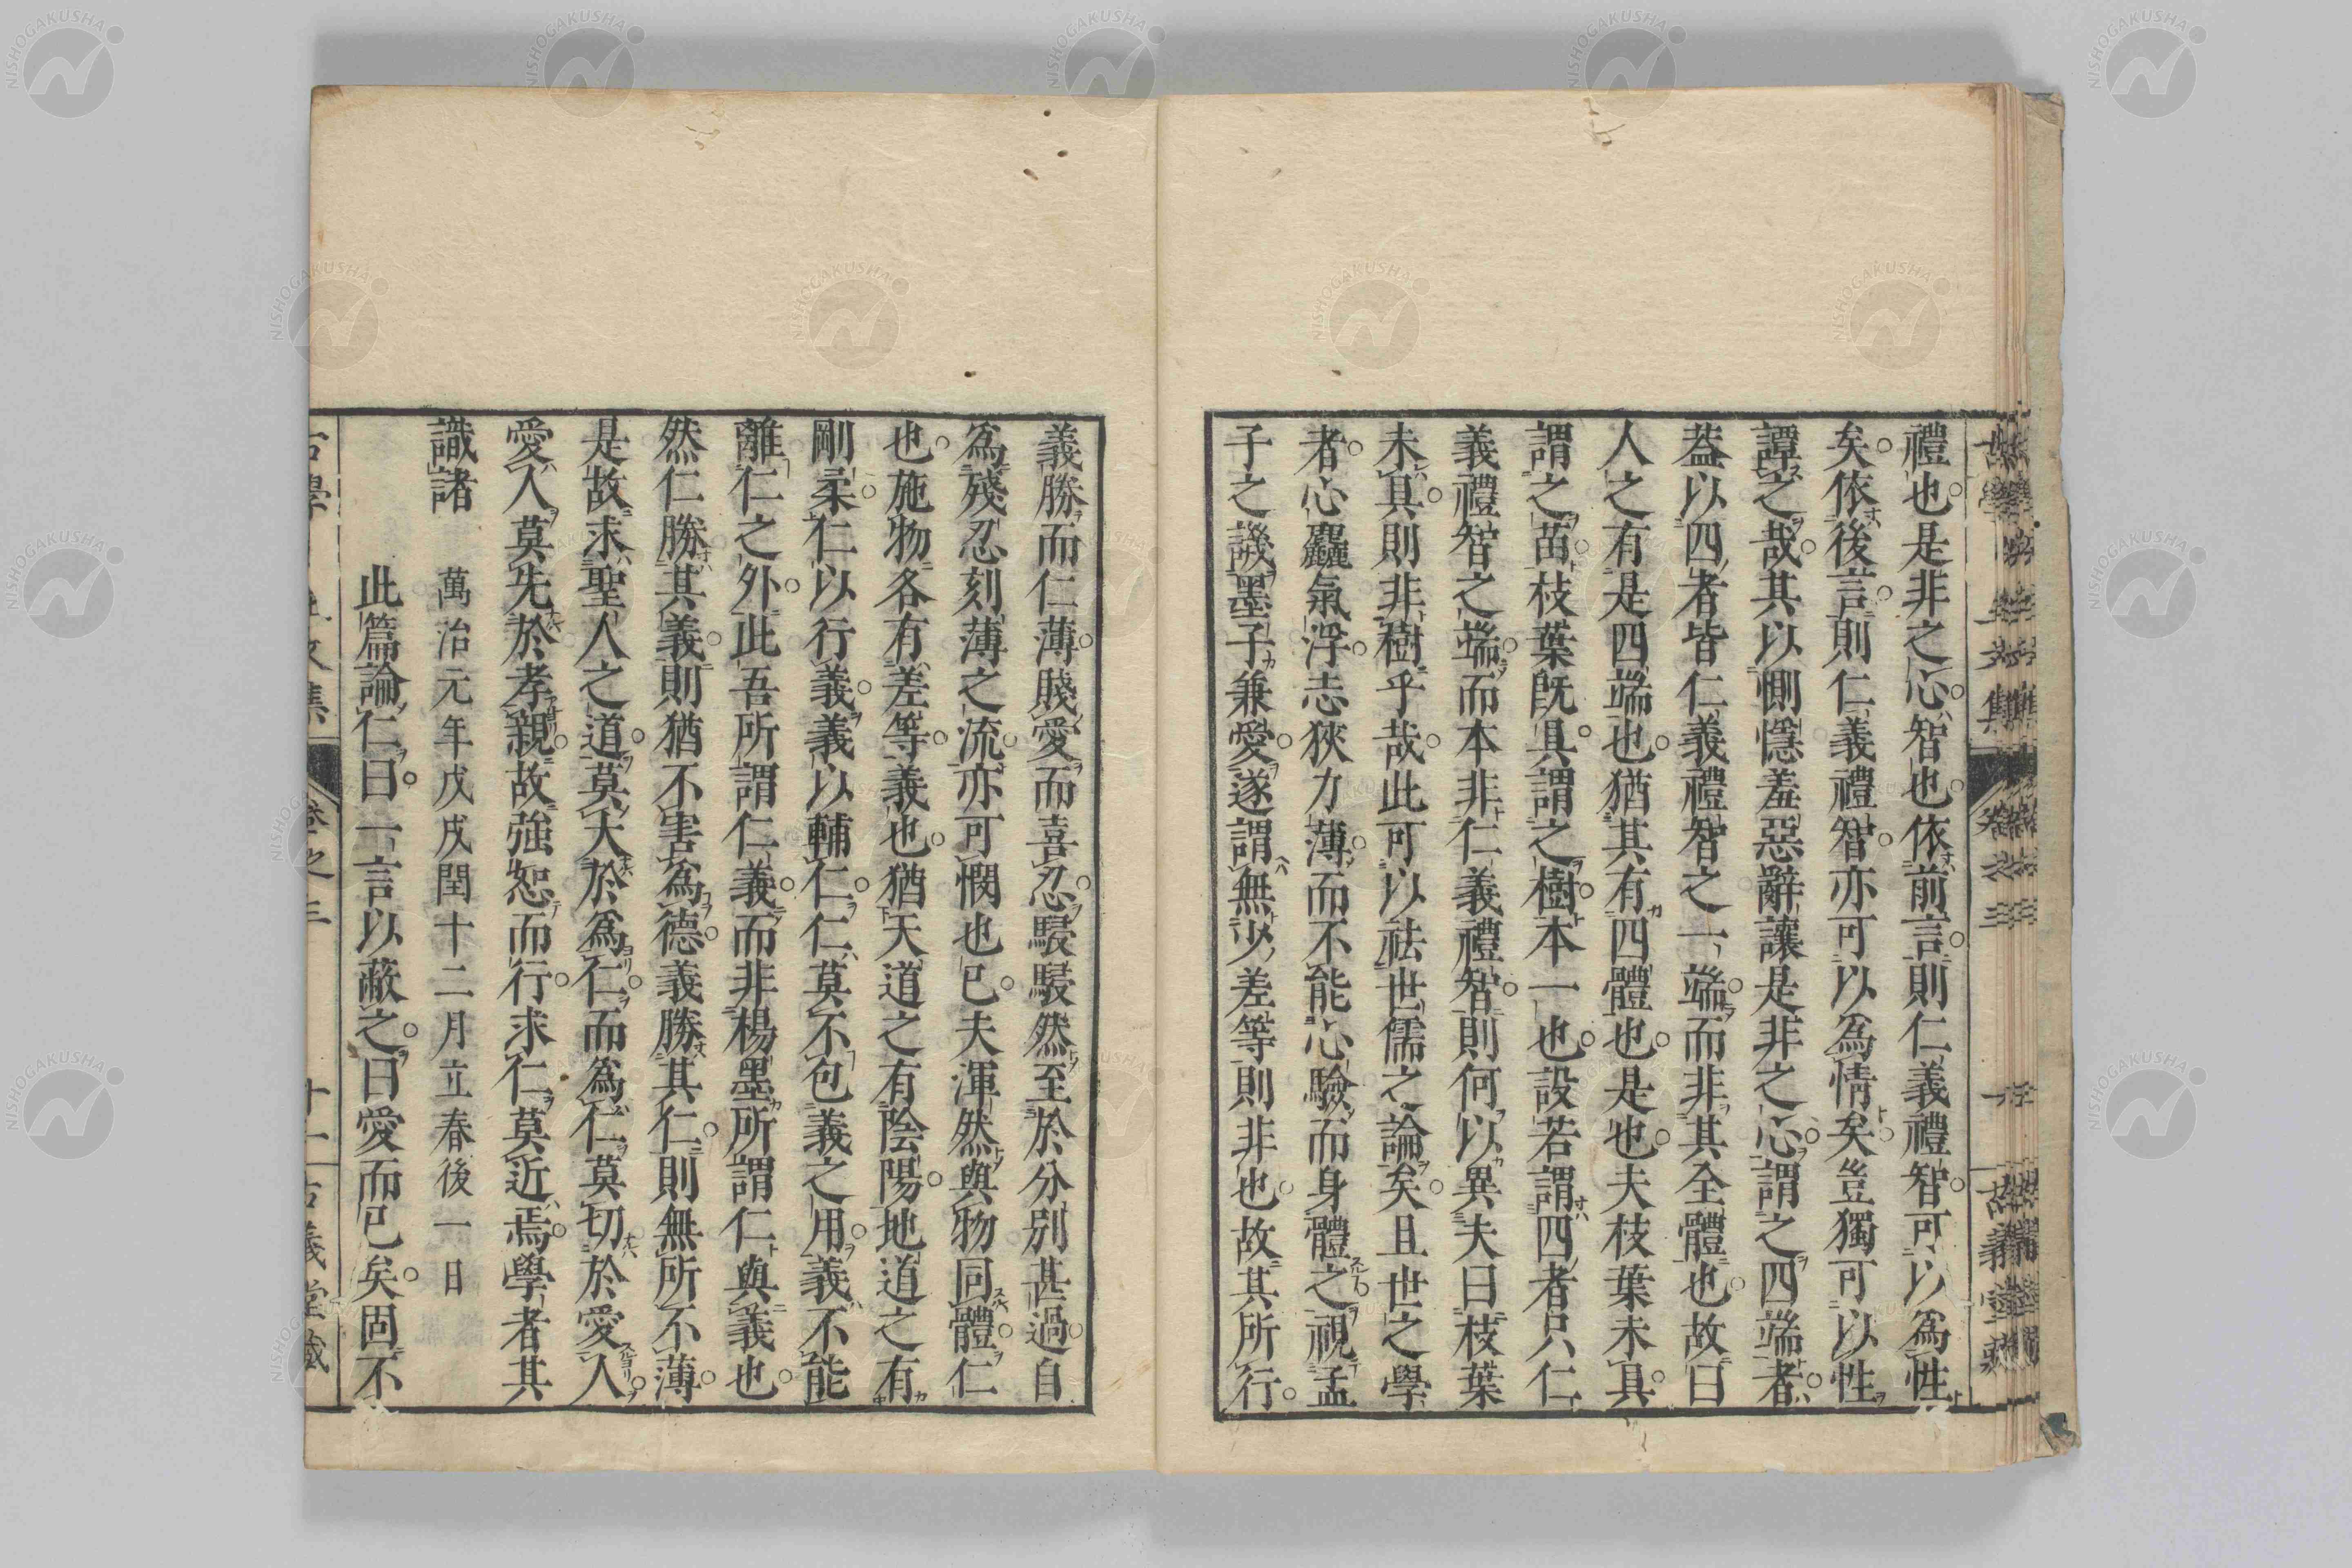 禮也是非之心智也依前言則仁義禮智可以爲性
矣依後言則仁義禮智亦可以爲情矣豈獨可以性
譚之哉其以惻隱羞惡辭讓是非之心謂之四端者
葢以四者皆仁義禮智之一端而非其全體也故曰
人之有是四端也猶其有四體也是也夫枝葉未具
謂之苗枝葉既具謂之樹本一也設若謂四者只仁
義禮智之端而本非仁義禮智則何以異夫曰枝葉
未具則非樹乎哉此可以祛世儒之論矣且世之學
者心麤氣浮志狹力薄而不能心驗而身體之視孟
子之譏墨子兼愛遂謂無少差等則非也故其所行
義勝而仁薄賤愛而喜忍駸駸然至於分別甚過自
爲殘忍刻薄之流亦可憫也已夫渾然與物同體仁
也施物各有差等義也猶天道之有陰陽地道之有
剛柔仁以行義義以輔仁仁莫不包義之用義不能
離仁之外此吾所謂仁義而非楊墨所謂仁與義也
然仁勝其義則猶不害爲德義勝其仁則無所不薄
是故求聖人之道莫大於爲仁而爲仁莫切於愛人
愛人莫先於孝親故強恕而行求仁莫近焉學者其
識諸
萬治元年戊戌閏十二月立春後一日
此篇論仁曰一言以蔽之曰愛而已矣固不
卷之三
十一